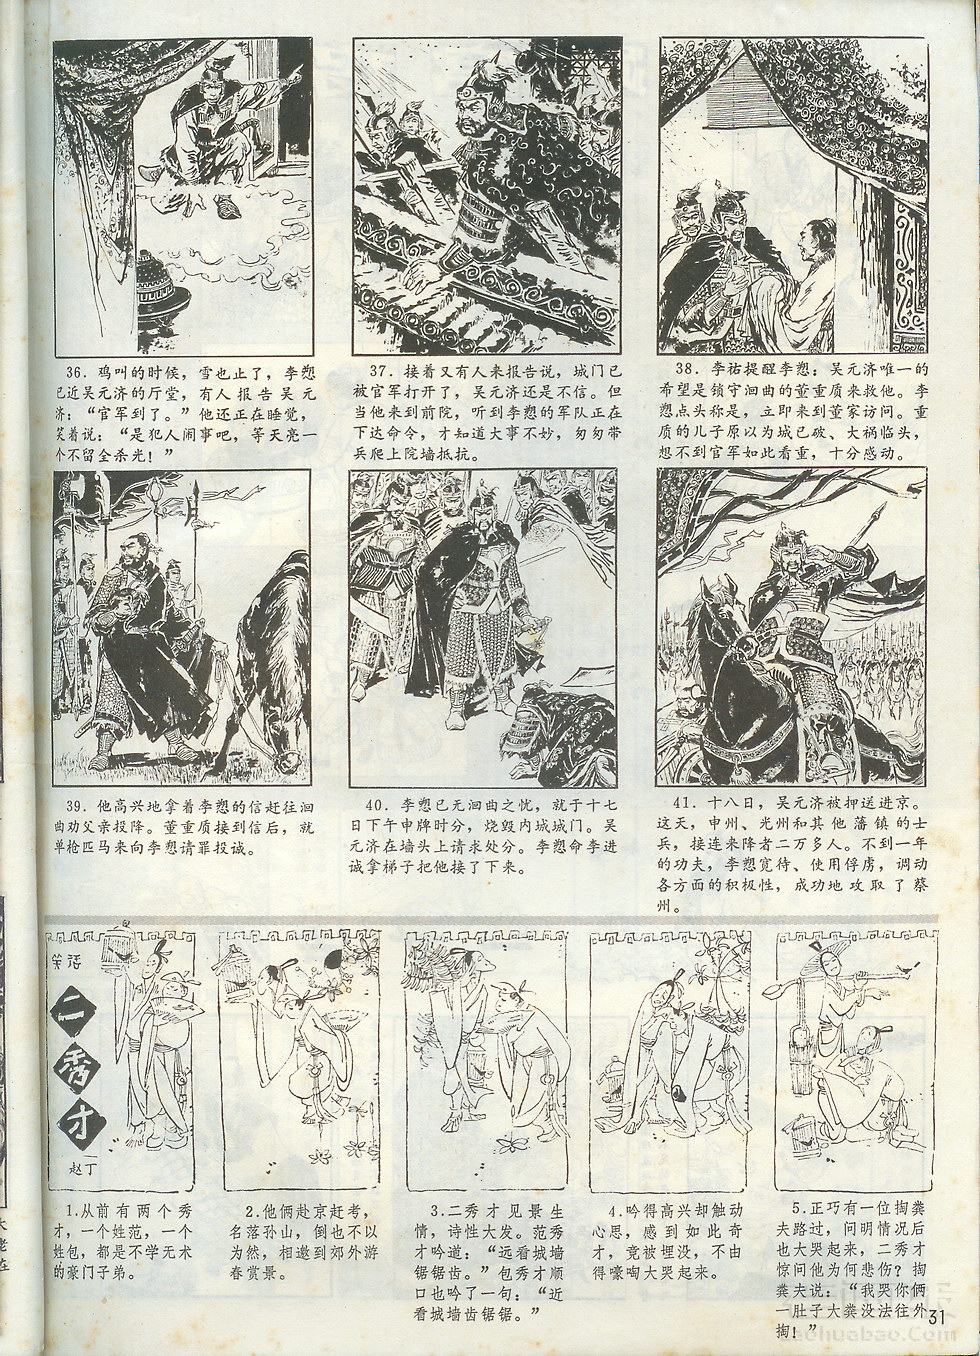 36. 鸡叫的时候，雪也止了，李愬
已近吴元济的厅堂，有人报告吴元
济：“官军到了。”他还正在睡觉，
笑着说：“是犯人闹事吧，等天亮一
个不留全杀光！”
37. 接着又有人来报告说，城门已
被官军打开了，吴元济还是不信。但
当他来到前院，听到李愬的军队正在
下达命令，才知道大事不妙，匆匆带
兵爬上院墙抵抗。
38. 李祐提醒李愬：吴元济唯一的
希望是镇守洄曲的董重质来救他。李
愬点头称是，立即来到董家访问。重
质的儿子原以为城已破、大祸临头，
想不到官军如此看重，十分感动。
39. 他高兴地拿着李愬的信赶往洄
曲劝父亲投降。董重质接到信后，就
单枪匹马来向李愬请罪投诚。
40. 李愬已无洄曲之忧，就于十七
日下午申牌时分，烧毁内城城门。吴
元济在墙头上请求处分。李愬命李进
诚拿梯子把他接了下来。
41. 十八日，吴元济被押送进京。
这天，申州、光州和其他藩镇的士
兵，接连来降者二万多人。不到一年
的功夫，李愬宽待、使用俘虏，调动
各方面的积极性，成功地攻取了蔡
州。
笑话
二秀才
赵丁
1.从前有两个秀
才，一个姓范，一个
姓包，都是不学无术
的豪门子弟。
2.他俩赴京赶考，
名落孙山，倒也不以
为然，相邀到郊外游
春赏景。
3.二秀才见景生
情，诗性大发。范秀
才吟道：“远看城墙
锯锯齿。”包秀才顺
口也吟了一句：“近
看城墙齿锯锯。”
4.吟得高兴却触动
心思，感到如此奇
才，竟被埋没，不由
得嚎啕大哭起来。
5.正巧有一位掏粪
夫路过，问明情况后
也大哭起来，二秀才
惊问他为何悲伤？掏
粪夫说：“我哭你俩
一肚子大粪没法往外
掏！”
31